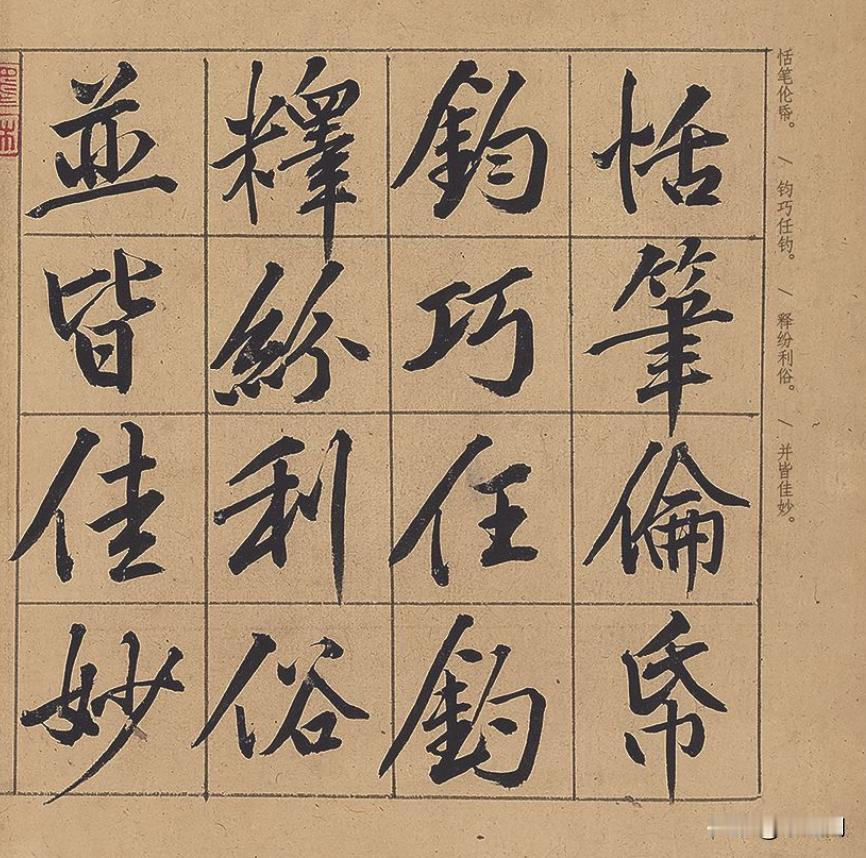 恬笔伦帋。 / 钧巧任钓。 / 释纷利俗。 / 并皆佳妙。
恬筆倫帋
鈞巧任釣
釋紛利俗
並皆佳妙